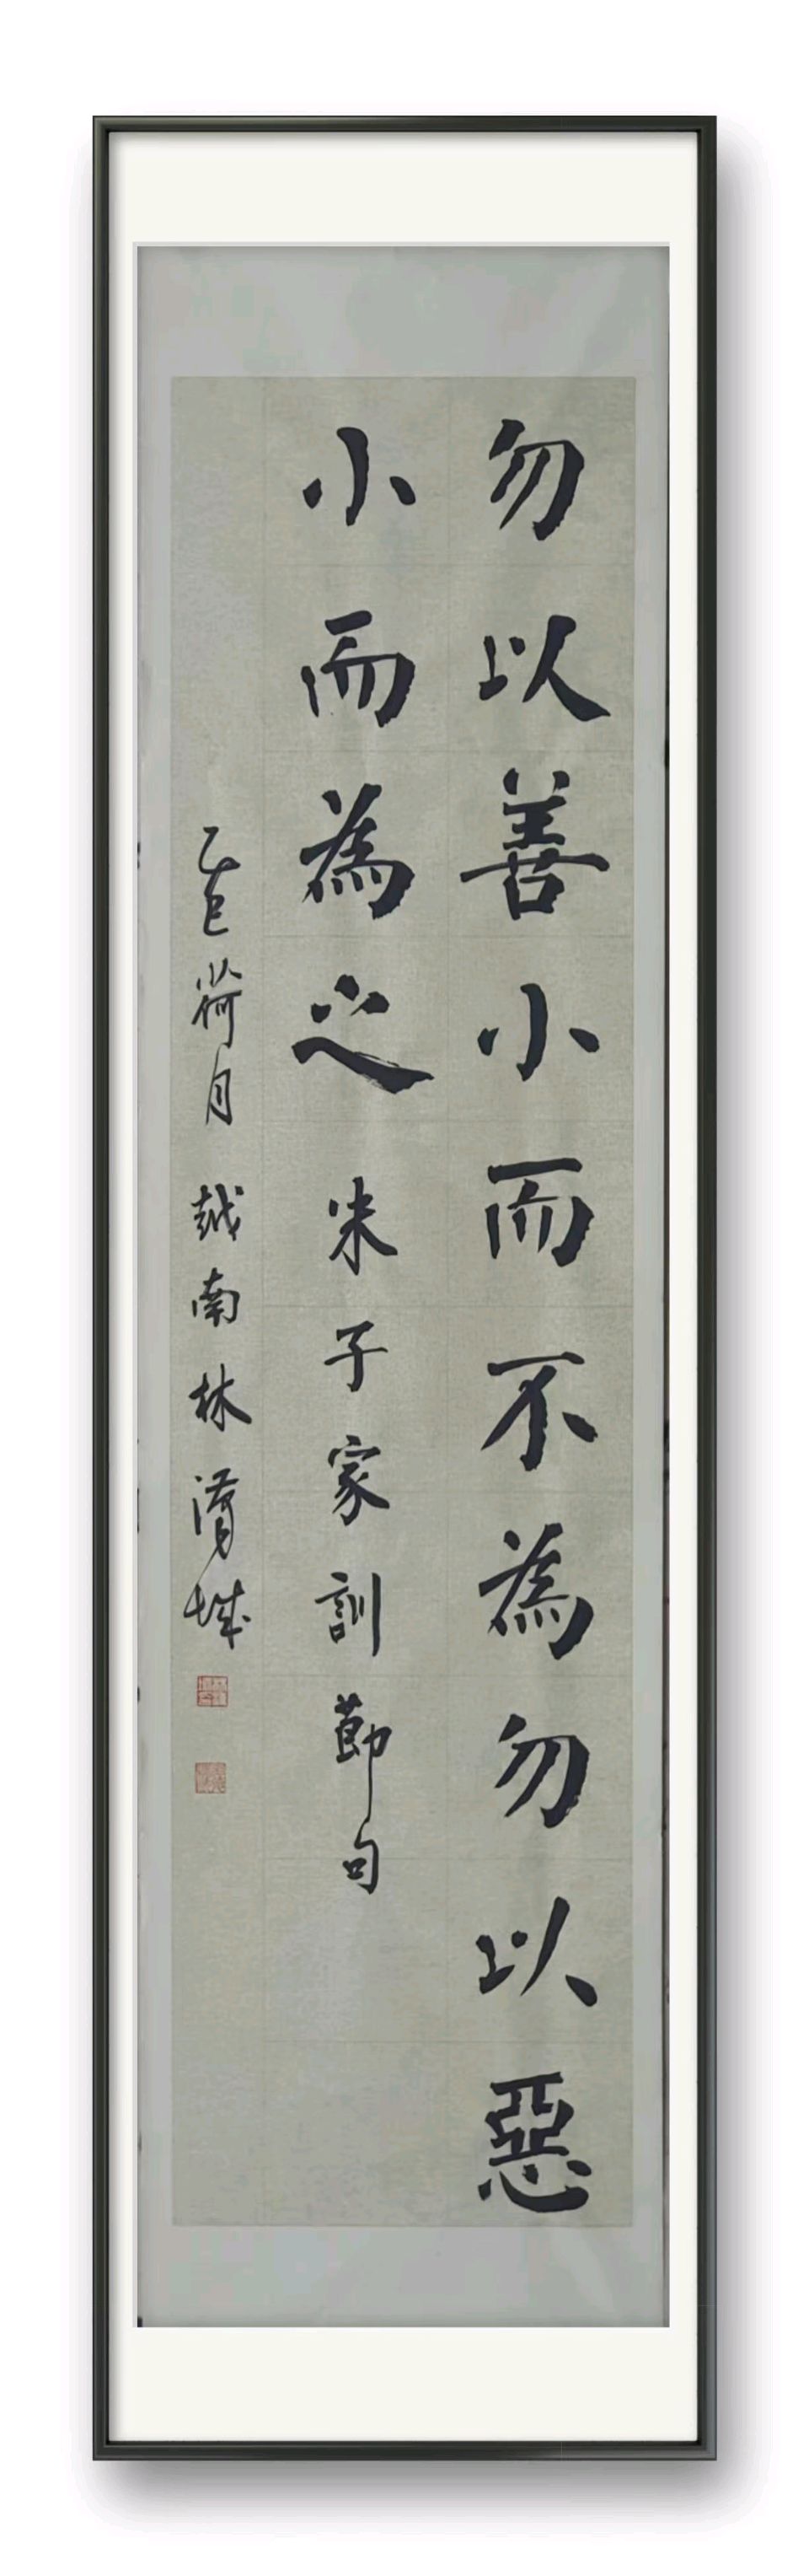 勿以善小而不為勿以惡
小而為之朱子家訓節句
乙巳荷月越南林漘城